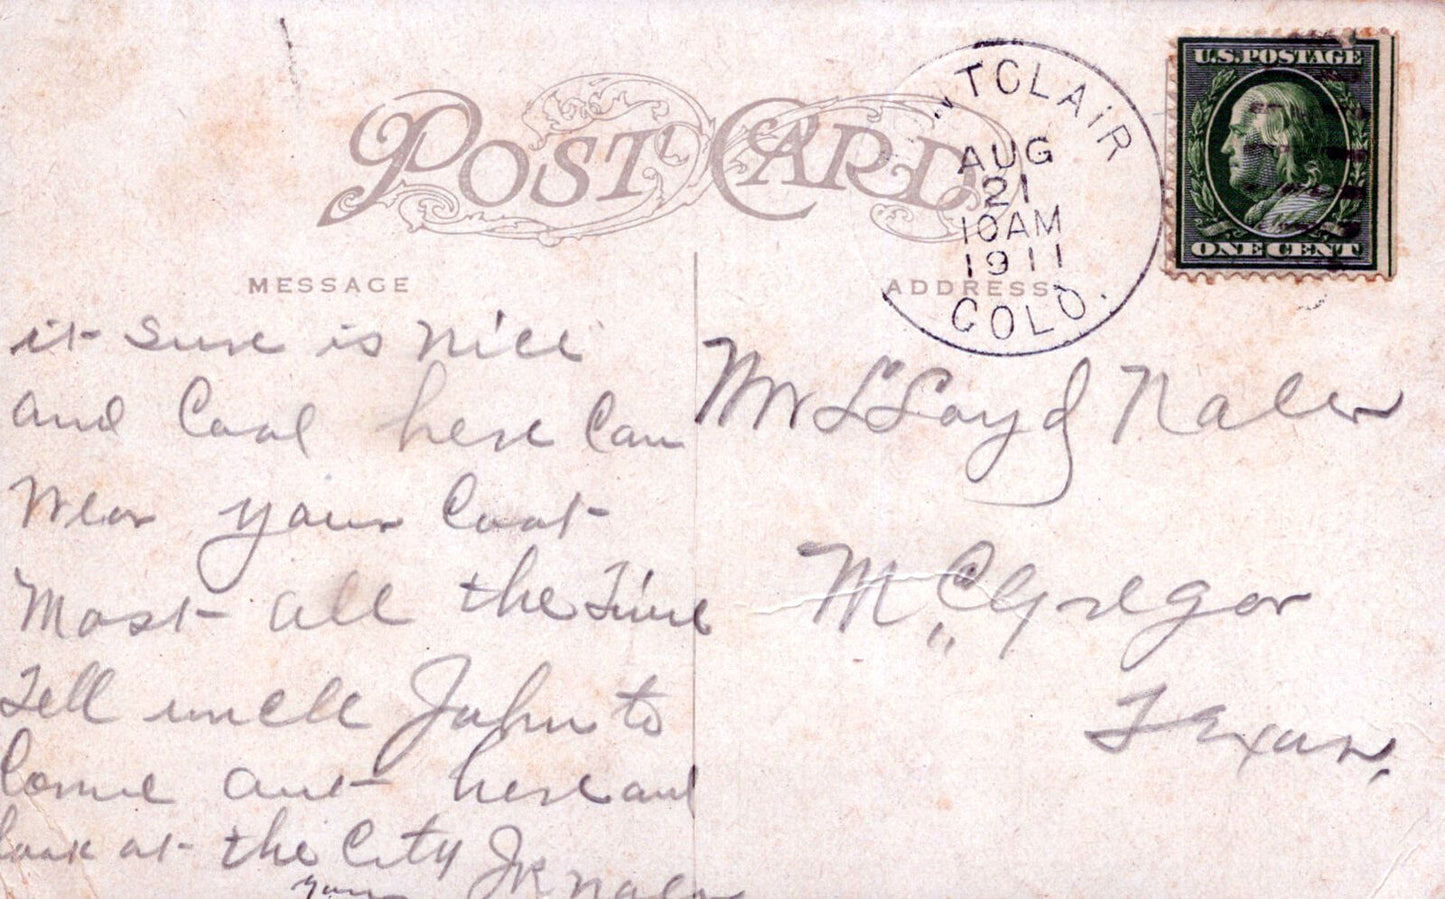 POST CARD
MESSAGE
it sure is nice
and Cool here Can
Wear your Coat
Most all the time
Tell uncle John to
Come out here and
look at the City
your JR Naler
NTCLAIR
AUG
21
10AM
1911
COLO.
U.S. POSTAGE
ONE CENT
ADDRESS
Mr LLoyd Naler
McGregor
Texas.